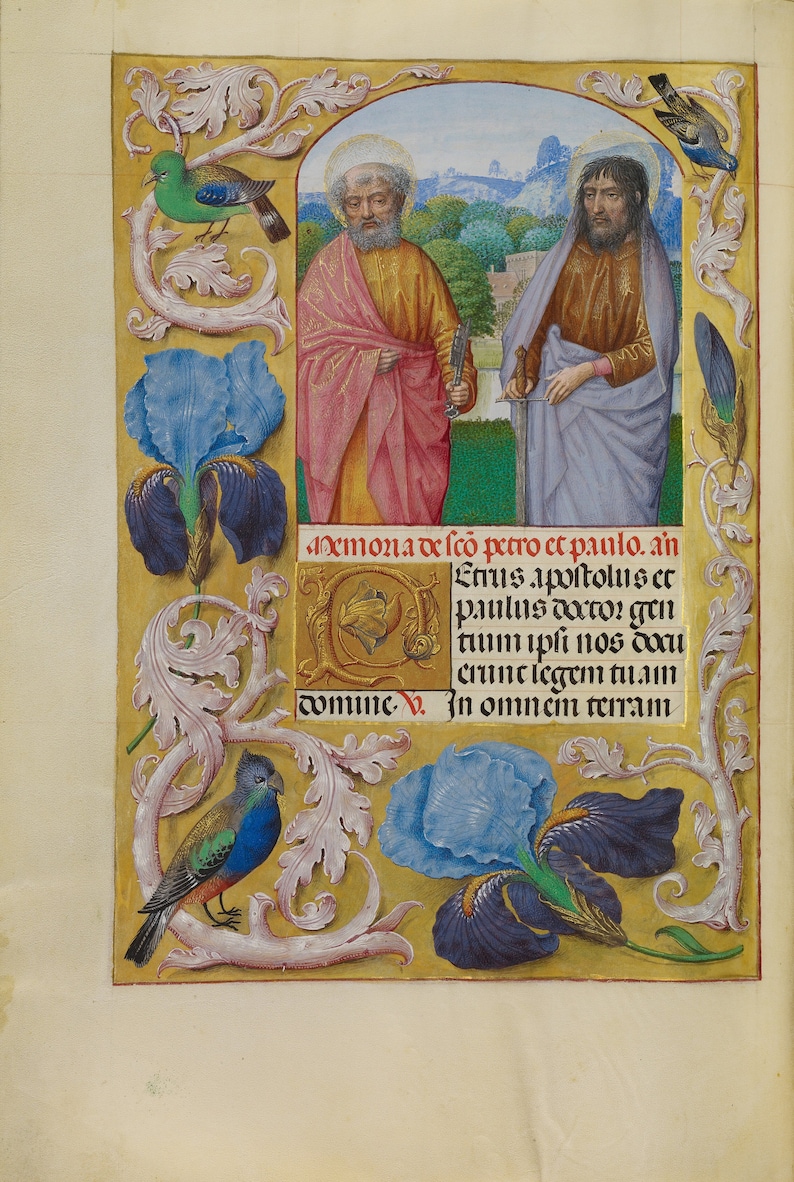 Memoria de scō petro et paulo. añ
Etrus apostolus et
paulus doctor gen
tium ipsi nos docu
erunt legem tuam
domine. V. In omnem terram